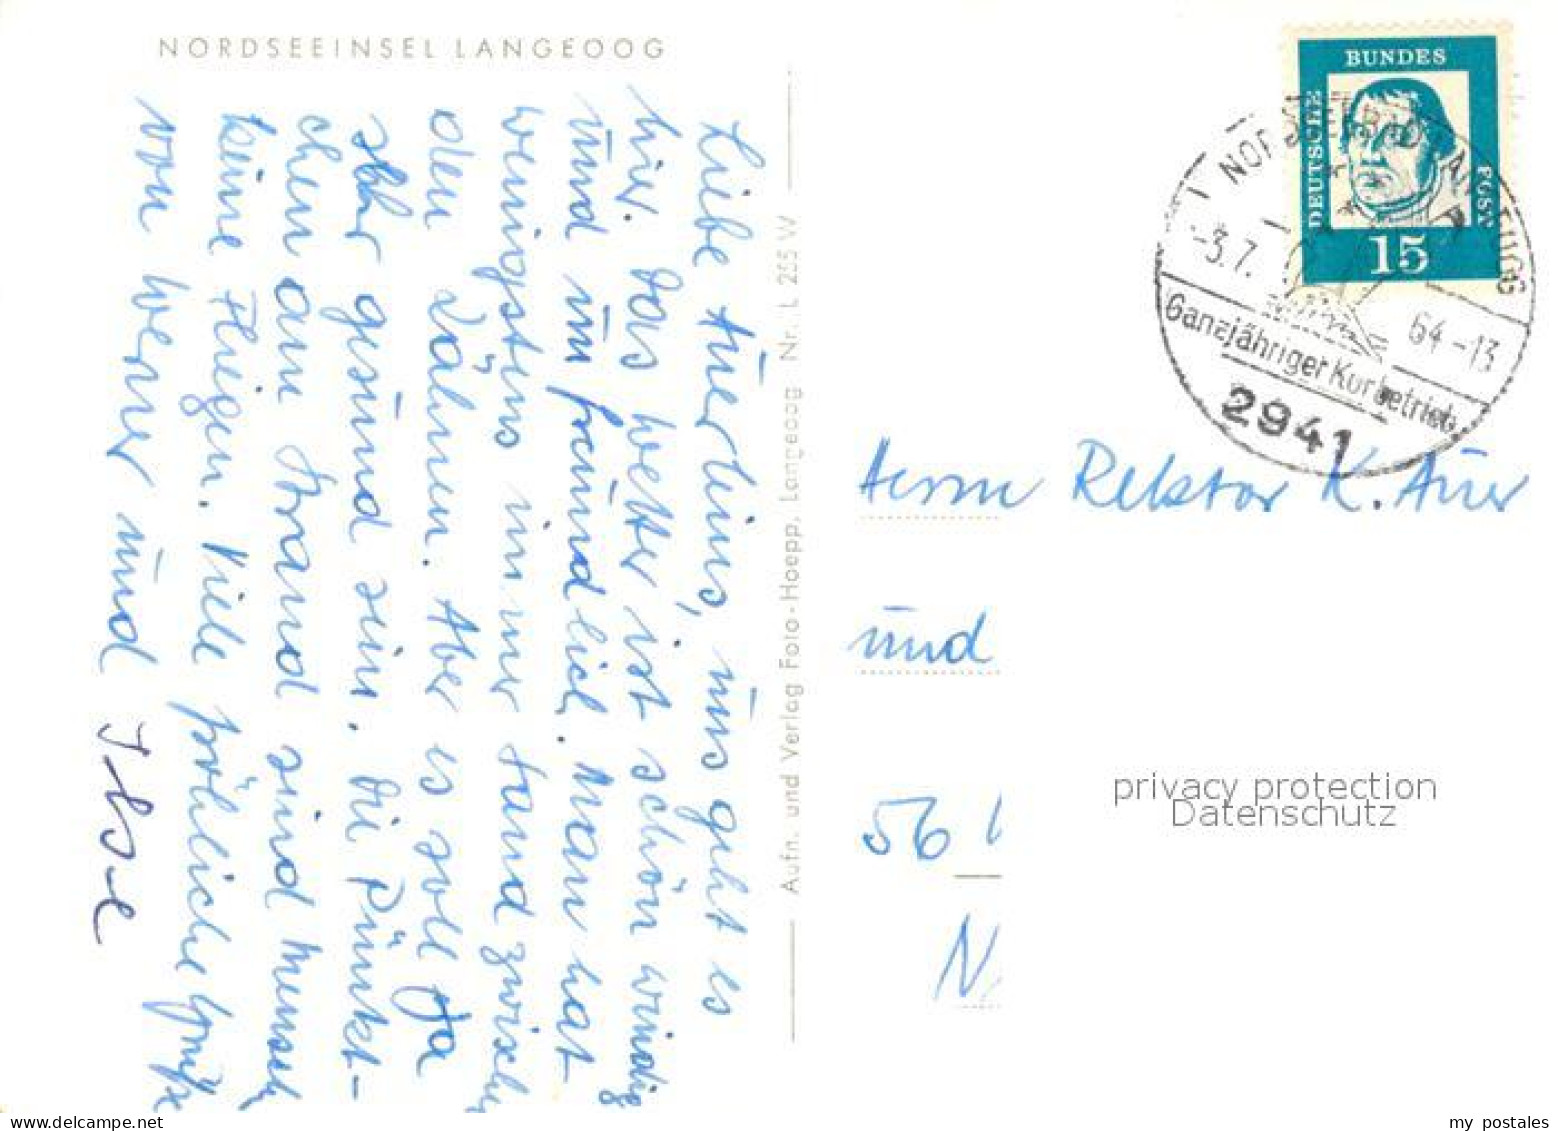 NORDSEEINSEL LANGEOOG
Liebe Auerleins, uns geht es
hier. Das Wetter ist schön windig
und unfreundlich. Man hat
wenigstens immer Sand zwischen
den Zähnen. Aber es soll ja
sehr gesund sein. Die Pünkt-
chen am Strand sind Menschen
keine Fliegen. Viele fröhliche Grüße
von Werner und
Ilse
Aufn. und Verlag Foto-Hoepp, Langeoog Nr. L 255 W
DEUTSCHE
BUNDES
POST
15
-3.7.
64-13
Ganzjähriger Kurbetrieb
2941
Herrn Rektor K. Auer
und
56
privacy protection
Datenschutz
my postales